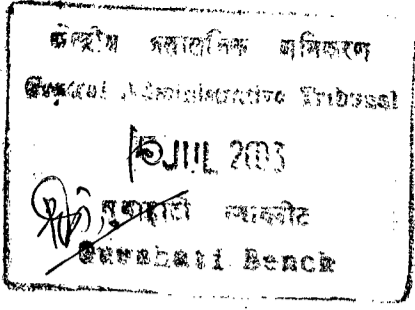 केन्द्रीय प्रशासनिक अधिकरण
Central Administrative Tribunal
JUL 2003
गुवाहाटी न्यायपीठ
Guwahati Bench